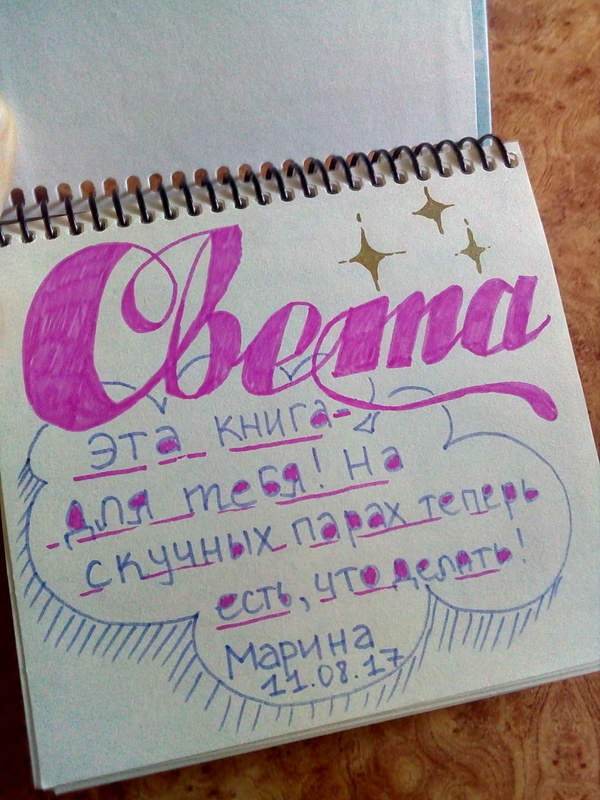 Света
эта книга-
для тебя! На
скучных парах теперь
есть, что делать!
Марина
11.08.17